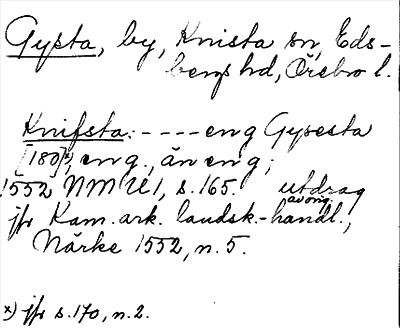 Gysta, by, Knista sn, Eds-
bergs hd, Örebro l.
Knifsta: ---- eng Gysesta
[180]ˣ⁾, en g., än eng;
1552 NMU1, s. 165. utdrag
av orig.
jfr Kam. ark. landsk.-handl.,
Närke 1552, n. 5.
x) jfr s. 170, n. 2.